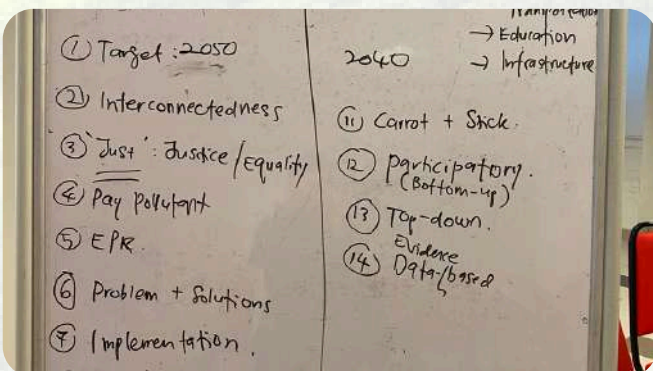 ① Target : 2050
② Interconnectedness
③ "Just" : Justice / Equality
④ Pay Pollutant
⑤ EPR.
⑥ Problem + Solutions
⑦ Implementation.
→ Education
2040 → Infrastructure
⑪ Carrot + Stick.
⑫ Participatory.
(Bottom-up)
⑬ Top-down.
Evidence
⑭ Data-/based